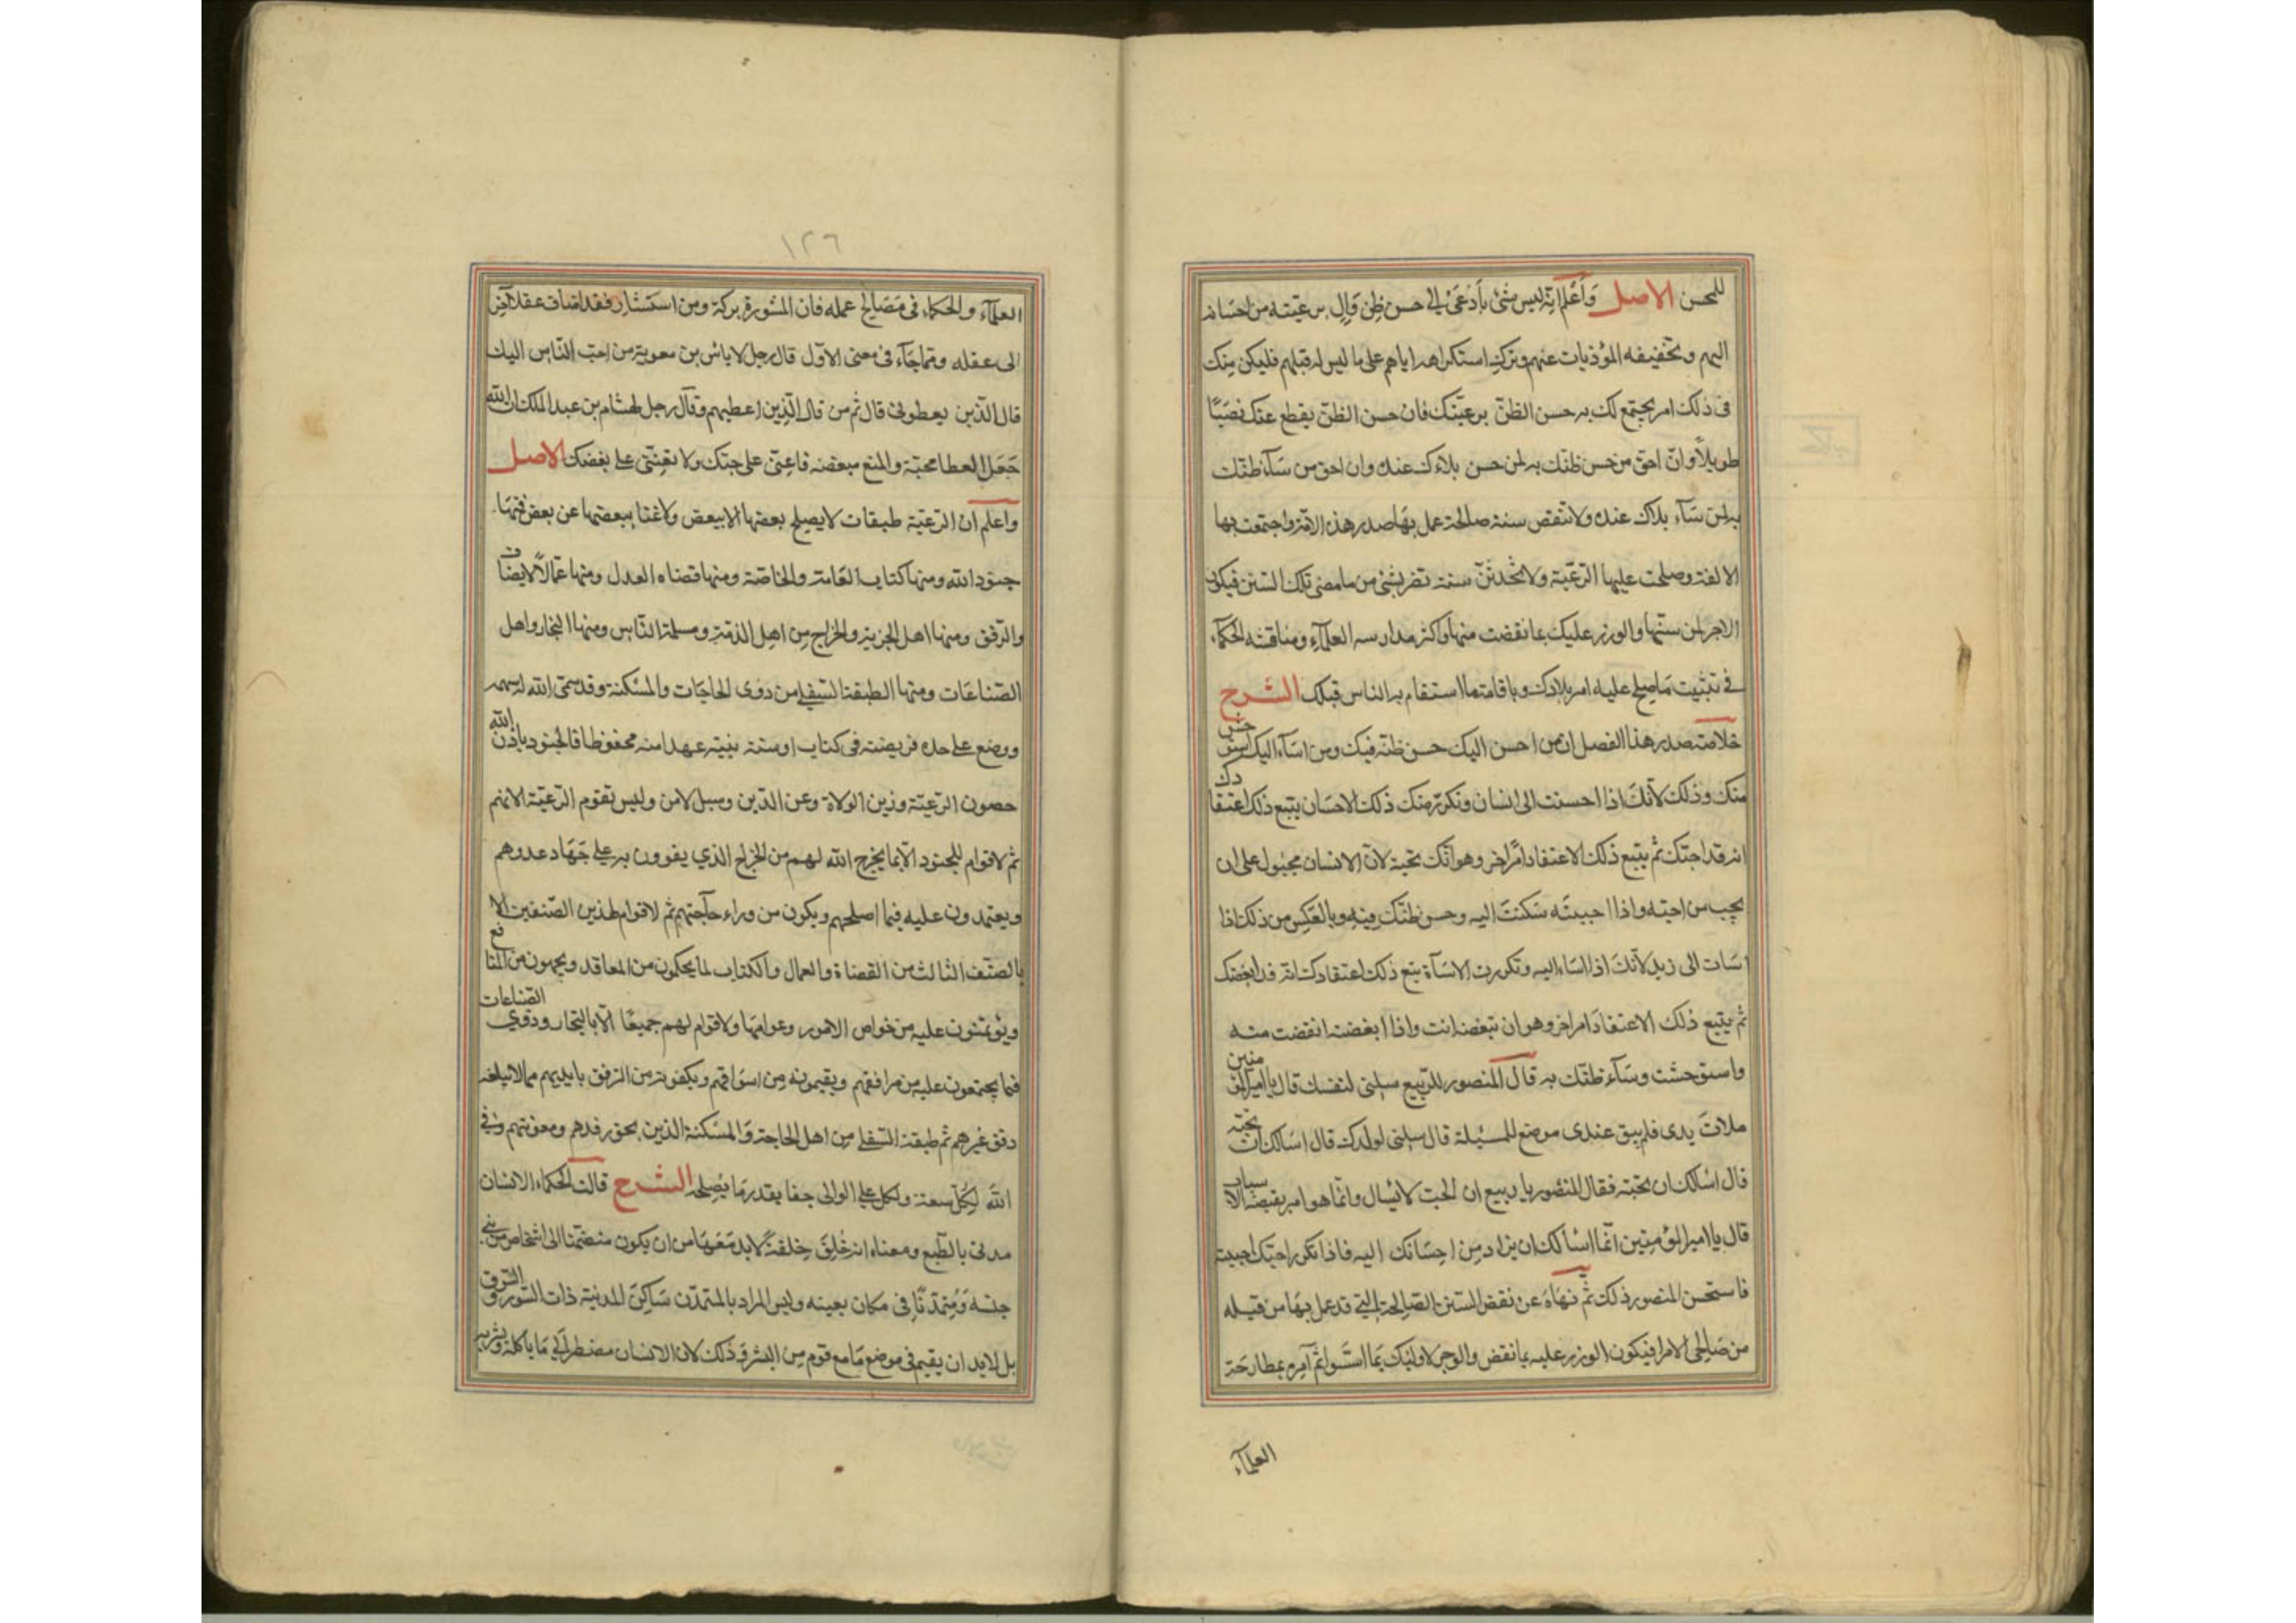 للمحسن الاصل وَاَعْلَم انّه ليس شئ بأدْعَىْ الى حسن ظنِ وَالٍ برعيّته من احسَانه
اليهم وتخفيفه المؤذيات عنهم وترك استكراهه اياهم على ما ليس له قبلهم فليكن مِنك
فى ذلك امر يجتمع لك به حسن الظنّ برعيّتك فان حسن الظنّ يقطع عنك نصَبًا
طويلاً وانّ احق من حسن ظنّك به لمن حسن بلاءك عنده وان احق من سَآء ظنّك
به لمن سَآء بلاك عنده ولا تنقص سنة صالحة عمل بهَا صدر هذه الامّة واجتمعت بها
الالفة وصلحت عليها الرّعيّة ولا تُحْدثَنّ سنة تضر بشئ من ما مضى تلك السّنن فيكون
الاجر لمن سنّها والوزر عليك بما نقضت منها واكثر مدارسه العلمآءِ ومناقشه الحكمآء
فى تثبيت مَا صلح عليه امر بلادك وباقامة ما استقام به الناس قبلك الشرح
خلاصة صدر هذا الفصل ان من احسن اليك حسن ظنّه فيك ومن اسآء اليك استوحش
منك وذلك لأنّك اذا احسنت الى انسان وتكرّر منك ذلك الاحسَان يتبع ذلك اعتقادك
انه قد احبّك ثم يتبع ذلك الاعتقاد امرًا اخر وهو انّك تحبّه لانّ الانسان مجبول على ان
يحِب من احبّه واذا احببتَه سَكنتَ اليه وحسن ظنّك فيهِ وبالعَكس من ذلك اذا
اسَات الى زيد لأنّك اذا اسَاء اليه وتكررت الاسَآة يتبع ذلك اعتقادك انّه قد ابغضك
ثم يتبع ذلك الاعتقادَ امر اخر وهو ان تبغضه انت واذا ابغضته انقضت منه
واستوحشت وسَآء ظنّك به قال المنصور للرّبيع سلنى لنفسك قال يا امير المؤمنين
ملات يدى فلم يبق عندى موضع للمسئلة قال سلنى لولدك قال اسَالك ان تحبّه
قال اسْالك ان تحبّه فقال المنصُور يا ربيع ان الحبّ لا يُسال وانّما هو امر يقتضه الاسباب
قال يا امير المؤمنين انّما اسْالك ان يزاد من احِسَانك اليه فاذا تكرر احبّك احببته
فاستحسن المنصور ذلك ثم نهَاهُ عن نقض السّنن الصّالحة الّتى قد عمل بهَا من قبله
من صَالحى الامرا فيكون الوزر عليه بما نقض والوجر لاولئك بمَا استَنوا ثم آمره بمطارحَة
العلمآء
١٢٦
العلمآء والحكماء فى مَصَالح عمله فان المشورة بركة ومن استَشَار فقد اضاف عقلا آخر
الى عقله وممّا جَآء فى معنى الاوّل قال رجل لاياس بن معوية من احبّ النّاس اليك
قال الّذين يعطونى قال ثم من قال الّذين اعطيهم وقآل رجل لهشام بن عبد الملك ان الله
جَعَل العطا محبّة والمنع مبغضه فاعِنّى على حبّك ولا تعِنّى على بغضك الاصل
واعلم ان الرّعيّة طبقات لا يصلح بعضها الا ببعض ولا غنا ببعضها عن بعض فمنهَا
جنود الله ومنها كتاب العَامة والخاصّة ومنها قضاه العدل ومنها عمّالاً لايضاف
والرّفق ومنها اهل الجزية والخراج من اهل الذمّة ومسلمة النّاس ومنها التجار واهل
الصّناعَات ومنها الطبقة السّفلى من ذوى الحاجَات والمسْكنة وقد سمّى الله له سهمه
ووضع على حده فريضته فى كتاب او سنة نبيّه عهدا منه محفوظا فالجنود باذن الله
حصون الرّعيّة وزين الولاة وعن الدّين وسبل لامن وليس تقوم الرّعيّة الا بهم
ثم لا قوام للجنود الّا بما يخرج الله لهم من الخراج الذي يقوون به على جَهاد عدوهم
ويعتمدون عليه فيما اصلحهم ويكون من وراء حآجتهم ثم لا قوام لهذين الصّنفين الا
بالصنّف الثالث من القضاة والعمال والكتاب لما يحكمون من المعاقد ويجمعون من المنافع
ويؤتمنون عليه من خواص الامور وعوامهَا ولا قوام لهم جميعًا الّا بالتجار وذوي الصّناعات
فيما يجتمعون عليه من مرافقهم ويقيمونه من اسوَاقهم ويكفونه من الرفق بايديهم مما لا يبلغه
رفق غيرهم ثم طبقة السّفلى من اهل الحاجة وَالمسْكنة الذين يحق رفدهم ومعونتهم وفى
اللّه لِكُلّ سعة ولكل على الوالى حقا بقدر مَا يُصلحه الشرح قالت الحكماء الانسَان
مدنى بالطّبع ومعناه انه خُلِقَ خِلقةً لابد مَعَهَا من ان يكون منضمّا الى اشخاص من بنى
جنسه وَمُتمدّنًا فى مكان بعينه وليس المراد بالمتمدّن سَاكن المدنية ذات السّور والسّوق
بل لابد ان يقيم فى موضع مَا مع قوم من البشر وَذلك لان الانسان مضطر الى مَا ياكله ويشربه